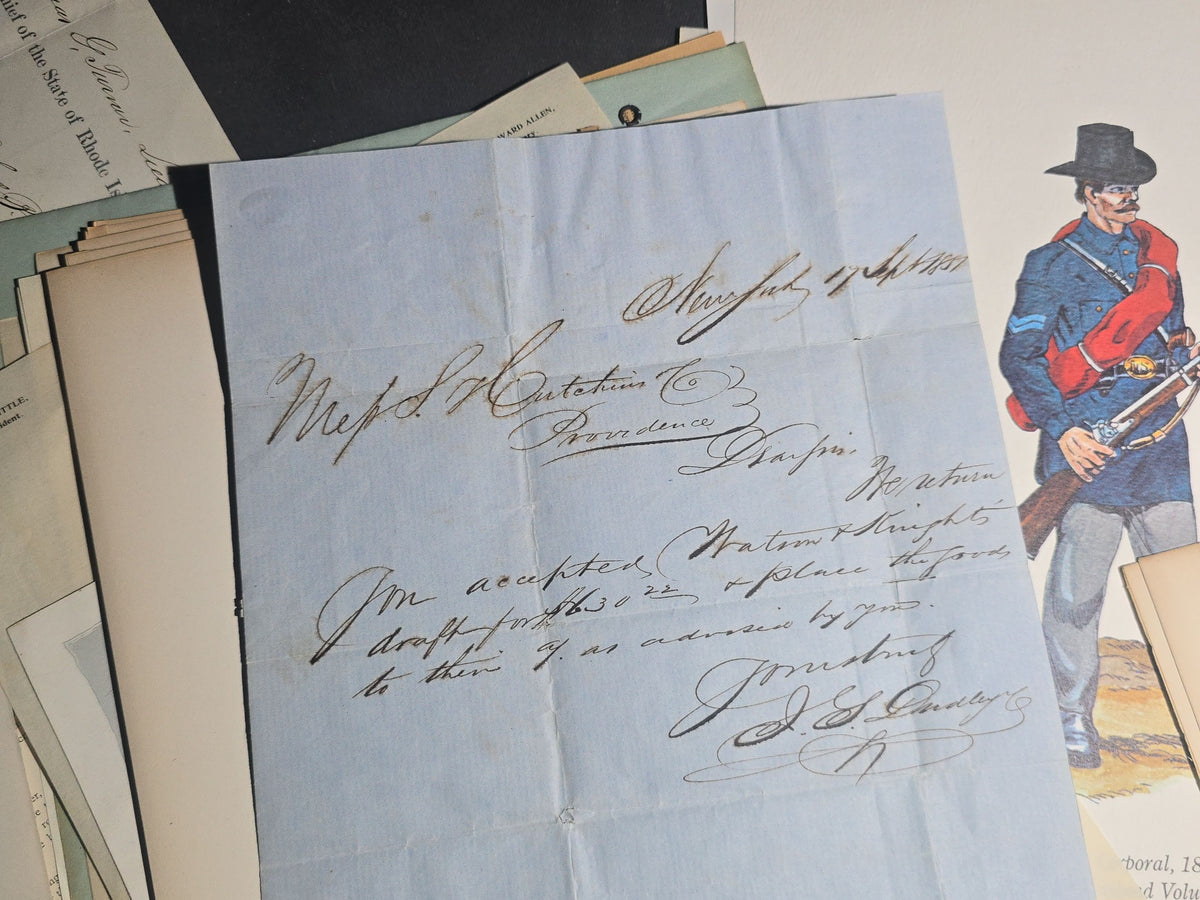 G. Turner,
Chief of the State of Rhode Is
WARD ALLEN,
TTLE,
ident
New York 17 Sept 1851
Mess S & H Hutchins & Co
Providence
Dear Sirs.
We return
You accepted Watson & Knights
draft for $630 22 & place the goods
to their a/. as advised by you.
Yours truly
J. S. Dudley & Co
rporal, 18
d Volu